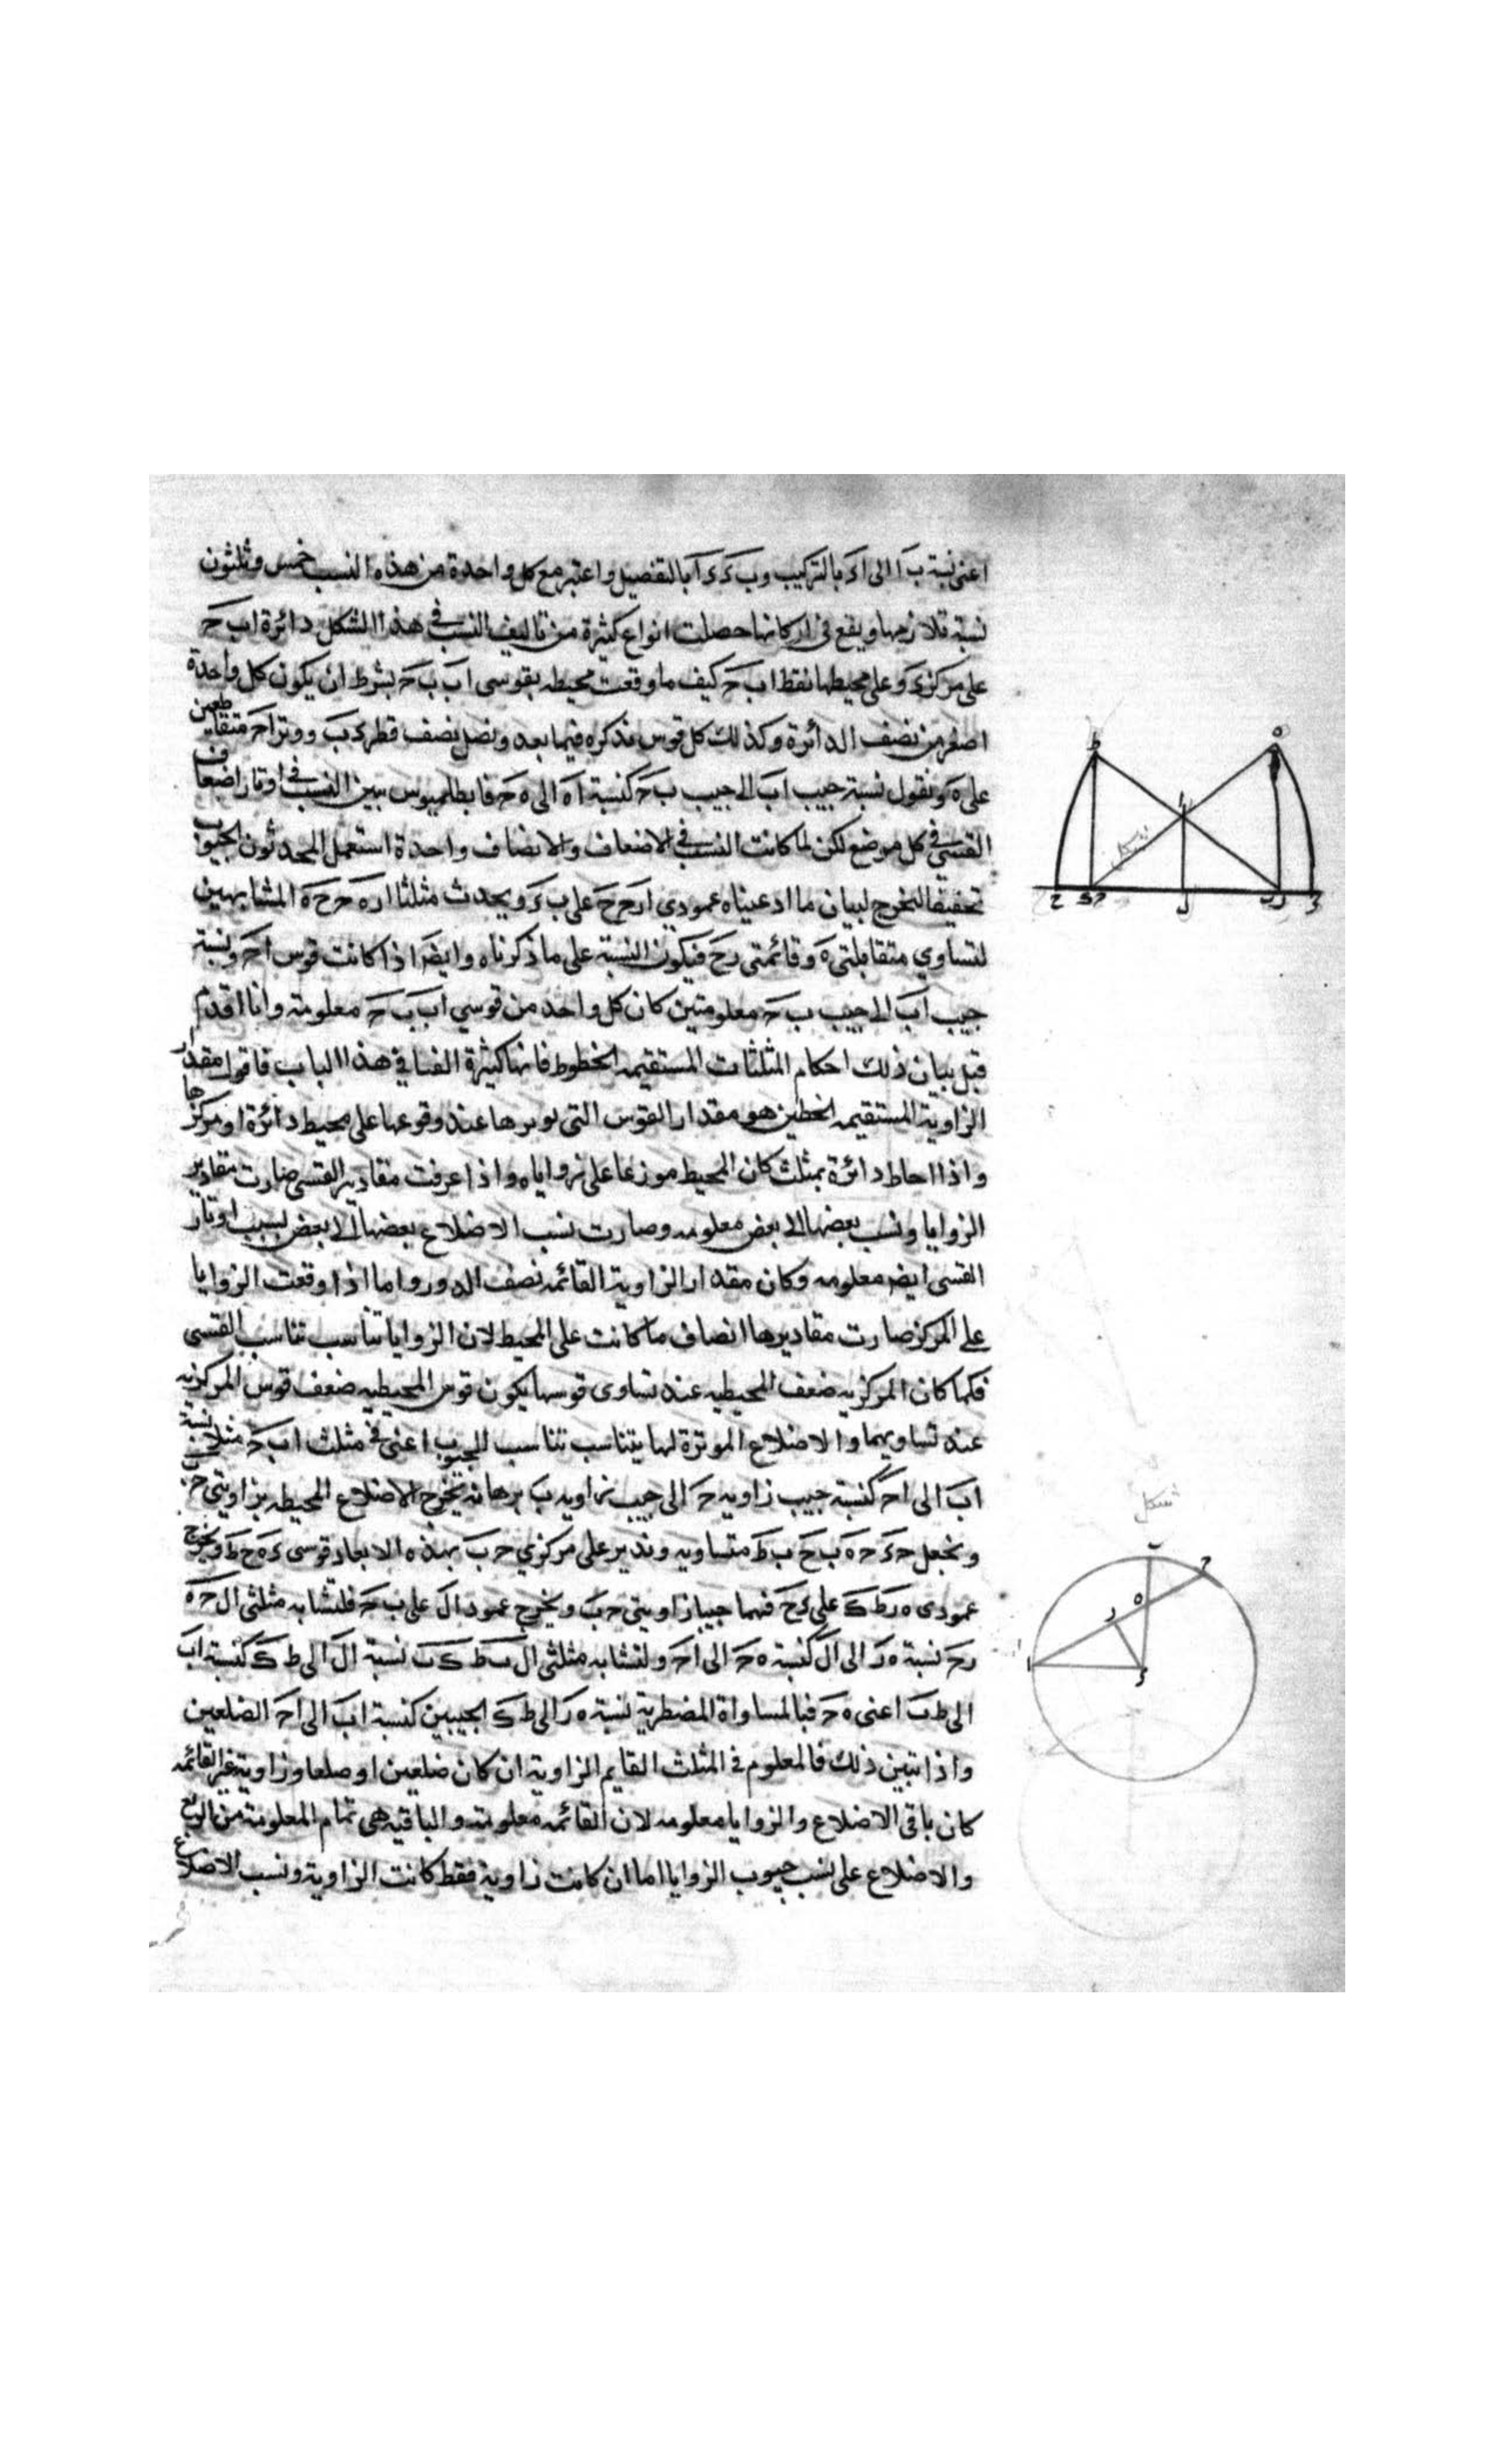 اعنى نسبة ب ا الى ا ء بالتركيب و ب ء ء ا بالتفصيل واعتبر مع كل واحدة من هذه النسب خمس وثلثون
نسبة تلازمها ويقع فى اركانها حصلت انواع كثيرة من تاليف النسب فى هذا الشكل دائرة ا ب ح
على مركز ء وعلى محيطها نقط ا ب ح كيف ما وقعت محيطه بقوسى ا ب ب ح بشرط ان يكون كل واحدة
اصغر من نصف الدائرة وكذلك كل قوس نذكره فيما بعد ونصل نصف قطر ء ب ووتر ا ح متقاطعين
على ه ونقول نسبة جيب ا ب الى جيب ب ح كنسبة ا ه الى ه ح فابطلميوس يبين النسب فى اوتار اضعاف
القسى فى كل موضع لكن لما كانت النسب فى الاضعاف والانصاف واحدة استعمل المحدثون الجيوب
تخفيفا فلنخرج لبيان ما ادعيناه عمودي ا ر ح ح على ب ء ويحدث مثلثا ا ر ه ح ح ه المتشابهين
لتساوي متقابلتى ه وقائمتى ر ح فيكون النسبة على ما ذكرناه وايضا اذا كانت قوس ا ح ونسبة
جيب ا ب الى جيب ب ح معلومتين كان كل واحد من قوسي ا ب ب ح معلومته وانا اقدم
قبل بيان ذلك احكام المثلثات المستقيمه الخطوط فانها كثيرة الغنا في هذا الباب فاقول مقدار
الزاوية المستقيمه الخطين هو مقدار القوس التى يوترها عند وقوعها على محيط دائرة او مركزها
واذا احاط دائرة بمثلث كان المحيط موزعا على زواياه واذا عرفت مقادير القسى صارت مقادير
الزوايا ونسب بعضها الى بعض معلومه وصارت نسب الاضلاع بعضها الى بعض بسبب اوتار
القسى ايضا معلومه وكان مقدار الزاوية القائمه نصف الدور واما اذا وقعت الزوايا
على المركز صارت مقاديرها انصاف ما كانت على المحيط لان الزوايا تناسب تناسب القسى
فكما كان المركزيه ضعف المحيطيه عند تساوى قوسها يكون قوس المحيطيه ضعف قوس المركزيه
عند تساويهما والاضلاع الموترة لها يتناسب تناسب الجيوب اعنى فى مثلث ا ب ح مثلا نسبة
ا ب الى ا ح كنسبة جيب زاويه ح الى جيب زاويه ب برهانه نخرج الاضلاع المحيطه بزاويتى ح ب
ونجعل ح ء ح ه ب ح ب ط متساويه وندير على مركزي ح ب بهذه الابعاد قوسى ء ه ح ط ونخرج
عمودى ه ر ط ك على ء ح فهما جيبا زاويتى ح ب ونخرج عمود ا ل على ب ح فلتشابه مثلثى ا ل ح ه
ر ح نسبة ه ر الى ا ل كنسبة ه ح الى ا ح ولتشابه مثلثى ا ل ب ط ك ب نسبة ا ل الى ط ك كنسبة ا ب
الى ط ب اعنى ه ح فبالمساواة المضطربة نسبة ه ر الى ط ك الجيبين كنسبة ا ب الى ا ح الضلعين
واذا تبين ذلك فالمعلوم فى المثلث القايم الزاوية ان كان ضلعين او ضلعا وزاوية غير القائمه
كان باقى الاضلاع والزوايا معلومه لان القائمه معلومته والباقيه هى تمام المعلومة من الربع
والاضلاع على نسب جيوب الزوايا اما ان كانت زاوية فقط كانت الزاوية ونسب الاضلاع
شكل
شكل